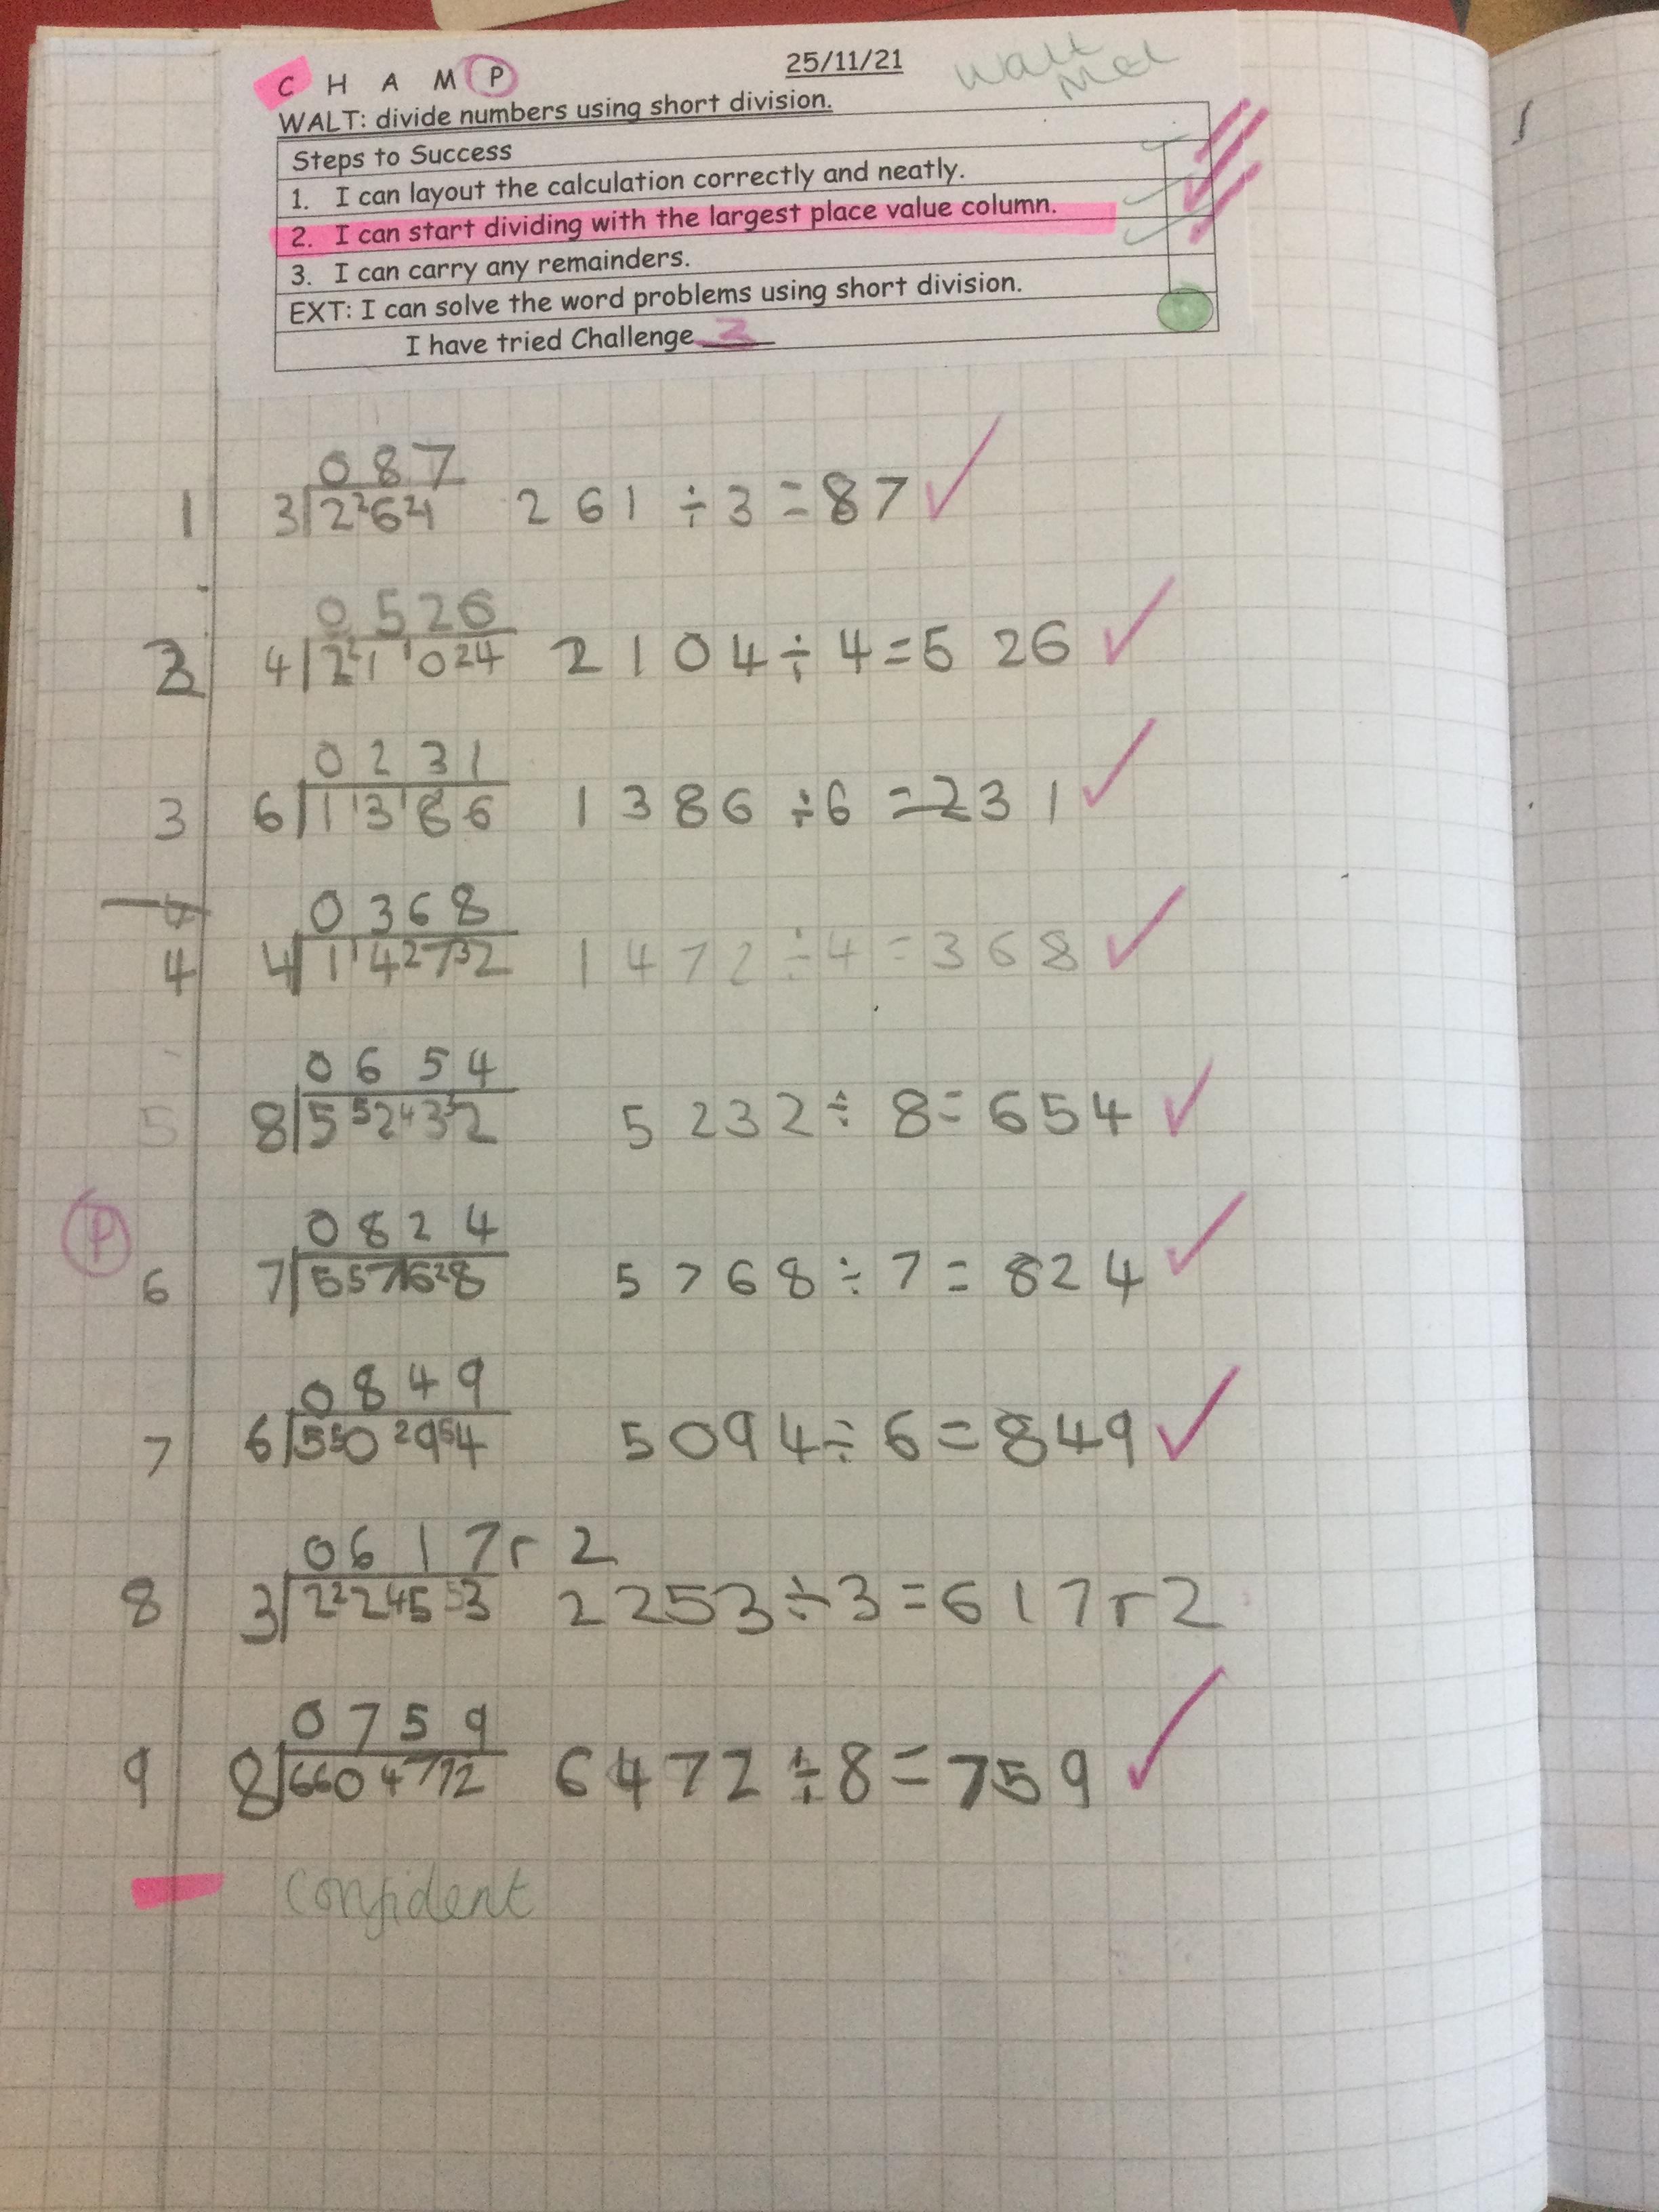 C H A M P
25/11/21
WALT: divide numbers using short division.
Steps to Success
1. I can layout the calculation correctly and neatly.
2. I can start dividing with the largest place value column.
3. I can carry any remainders.
EXT: I can solve the word problems using short division.
I have tried Challenge 3
0 8 7
1 3 2 2 6 2 1 2 6 1 ÷ 3 = 8 7
0 5 2 6
2 4 2 2 1 1 0 2 4 2 1 0 4 ÷ 4 = 5 2 6
0 2 3 1
3 6 1 1 3 1 8 6 1 3 8 6 ÷ 6 = 2 3 1
0 3 6 8
4 4 1 1 4 2 7 3 2 1 4 7 2 ÷ 4 = 3 6 8
0 6 5 4
5 8 5 5 2 4 3 3 2 5 2 3 2 ÷ 8 = 6 5 4
0 8 2 4
P
6 7 5 5 7 1 6 2 8 5 7 6 8 ÷ 7 = 8 2 4
0 8 4 9
7 6 5 5 0 2 9 5 4 5 0 9 4 ÷ 6 = 8 4 9
0 6 1 7 r 2
8 3 2 2 2 4 5 5 3 2 2 5 3 ÷ 3 = 6 1 7 r 2
0 7 5 9
9 8 6 6 0 4 7 7 2 6 4 7 2 ÷ 8 = 7 5 9
Confident